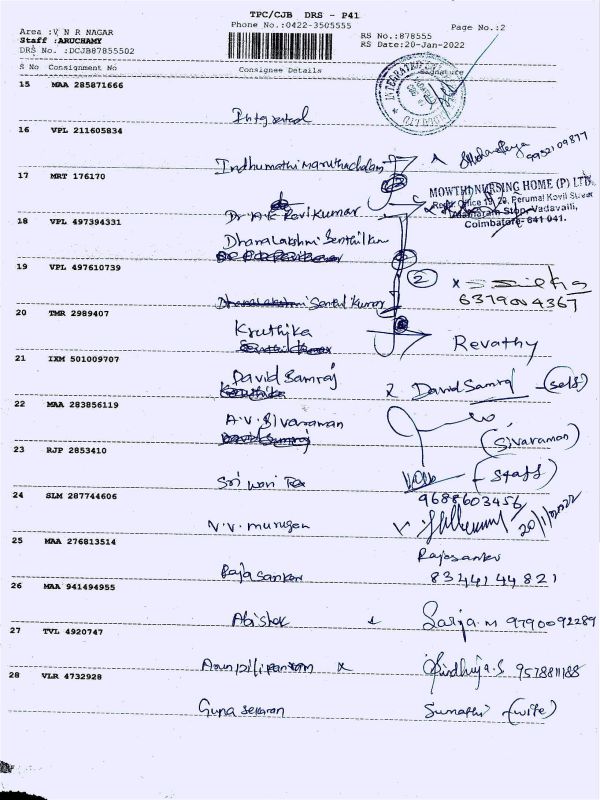 TPC/CJB DRS - P41
Phone No.:0422-3505555
Page No.:2
Area :V N R NAGAR
Staff :ARUCHAMY
DRS No. :DCJB87855502
RS No.:878555
RS Date:20-Jan-2022
S No Consignment No Consignee Details Signature
15 MAA 285871666
Integrated
16 VPL 211605834
Indhumathi Maruthachalam
9952109877
17 MRT 176170
MOWTHI NURSING HOME (P) LTD.
Perumal Kovil Street
Stop, Vadavalli,
Coimbatore- 641 041.
Dr. A.K Ravikumar
18 VPL 497394331
Dhanalakshmi Senthilkumar
19 VPL 497610739
2
6379004367
Dhanalakshmi Senthil Kumar
20 TMR 2989407
Kruthika
Revathy
21 IXM 501009707
David Samraj
David Samraj (self)
22 MAA 283856119
A.V. Sivaraman
(Sivaraman)
23 RJP 2853410
Sri Wari Tex
(Staff)
24 SLM 287744606
9688603456
V.V. Murugan
20/1/2022
25 MAA 276813514
Rajasankar
Rajasankar
8344144821
26 MAA 941494955
Abishek
Sarja.M 9790092289
27 TVL 4920747
Sindhuja.S 9578811188
28 VLR 4732928
Gunasekaran
Sumathi (wife)